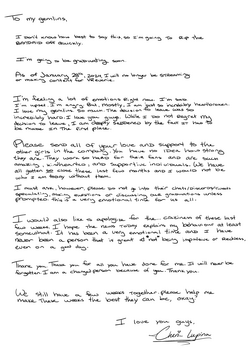 To my gremlins,
I don't know how best to say this, so I'm going to rip the
bandaid off quickly.
I'm going to be graduating soon.
As of January 28th, 2024 I will no longer be streaming
or making content for VReverie.
I'm feeling a lot of emotions right now. I'm sad.
I'm upset. I'm angry. But, mostly, I am just so incredibly heartbroken.
I love my gremlins so much. The decision to leave was so
incredibly hard. I love you guys. While I do not regret my
decision to leave, I am deeply saddened by the fact it has to
be made in the first place.
Please send all of your love and support to the
other girls in the company. You have no idea how strong
they are. They work so hard for their fans and are such
amazing, kindhearted, and supportive individuals. We have
all gotten so close these last few months and I would not be
who I am today without them.
I must ask, however, please do not go into their chats/discords/tweets
specifically asking questions or discussing our graduations unless
prompted. This is a very emotional time for us all.
I would also like to apologize for the craziness of these last
few weeks. I hope the news today explains my behaviour at least
somewhat. It has been a very emotional time and I have
never been a person that is great at not being impulsive or reckless,
even on a good day.
Thank you. Thank you for all you have done for me. It will never be
forgotten. I am a changed person because of you. Thank you.
We still have a few weeks together. Please help me
make these weeks the best they can be, okay?
I love you guys,
Cheri Lupina